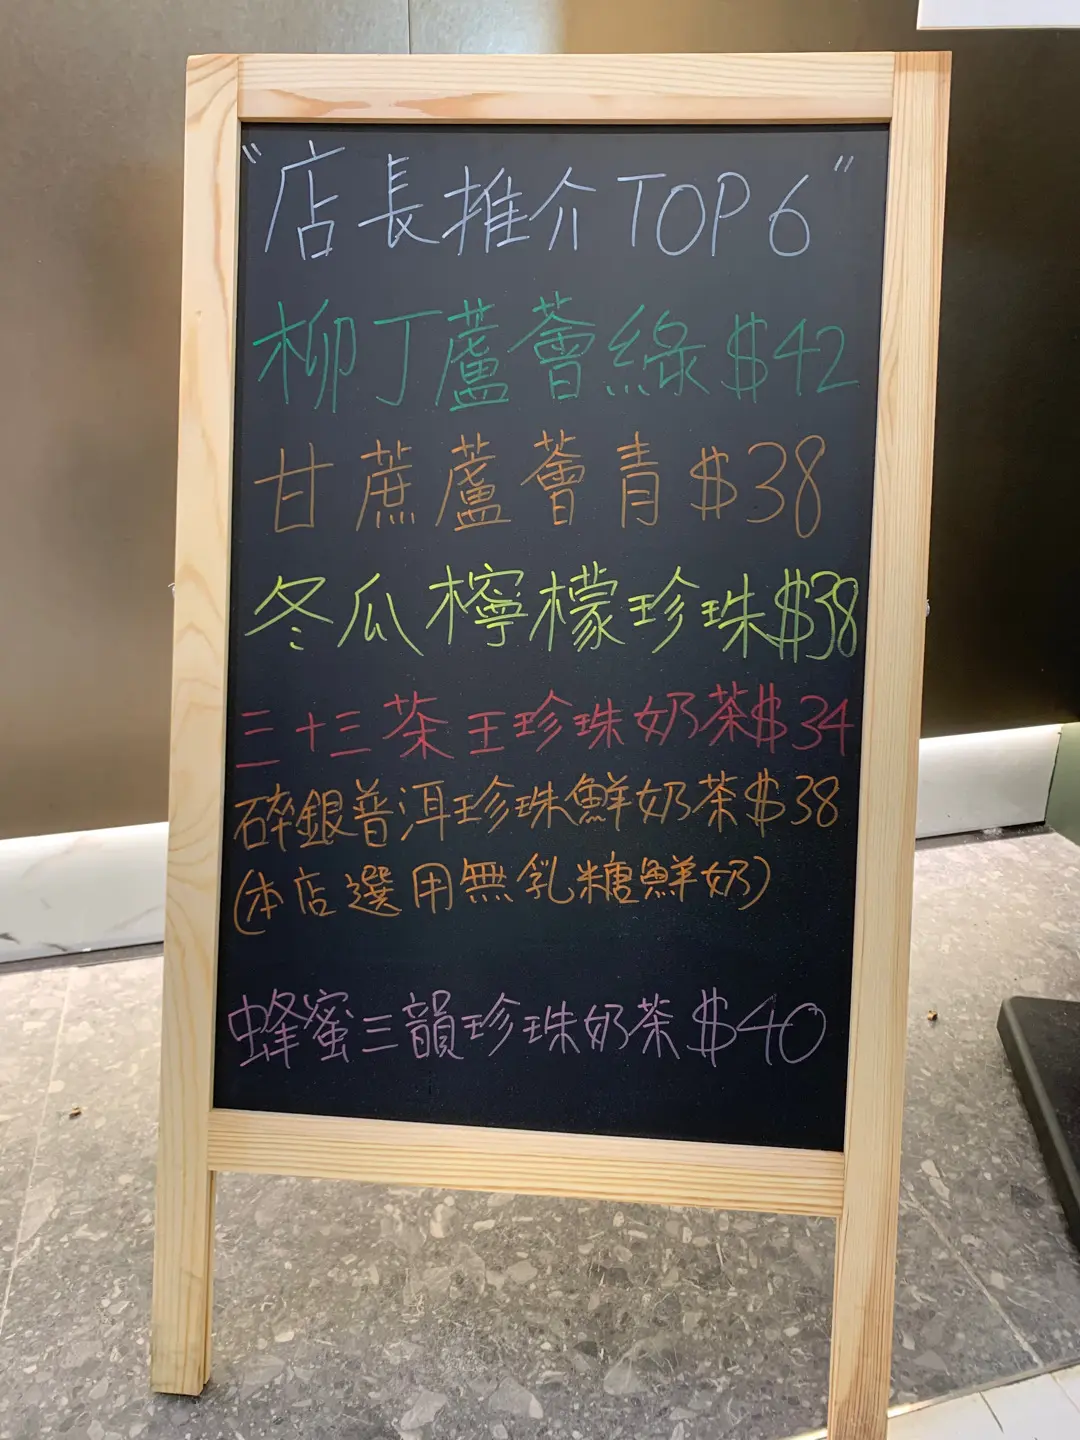 "店長推介TOP 6"
柳丁蘆薈綠$42
甘蔗蘆薈青$38
冬瓜檸檬珍珠$38
三十三茶王珍珠奶茶$34
碎銀普洱珍珠鮮奶茶$38
(本店選用無乳糖鮮奶)
蜂蜜三韻珍珠奶茶$40